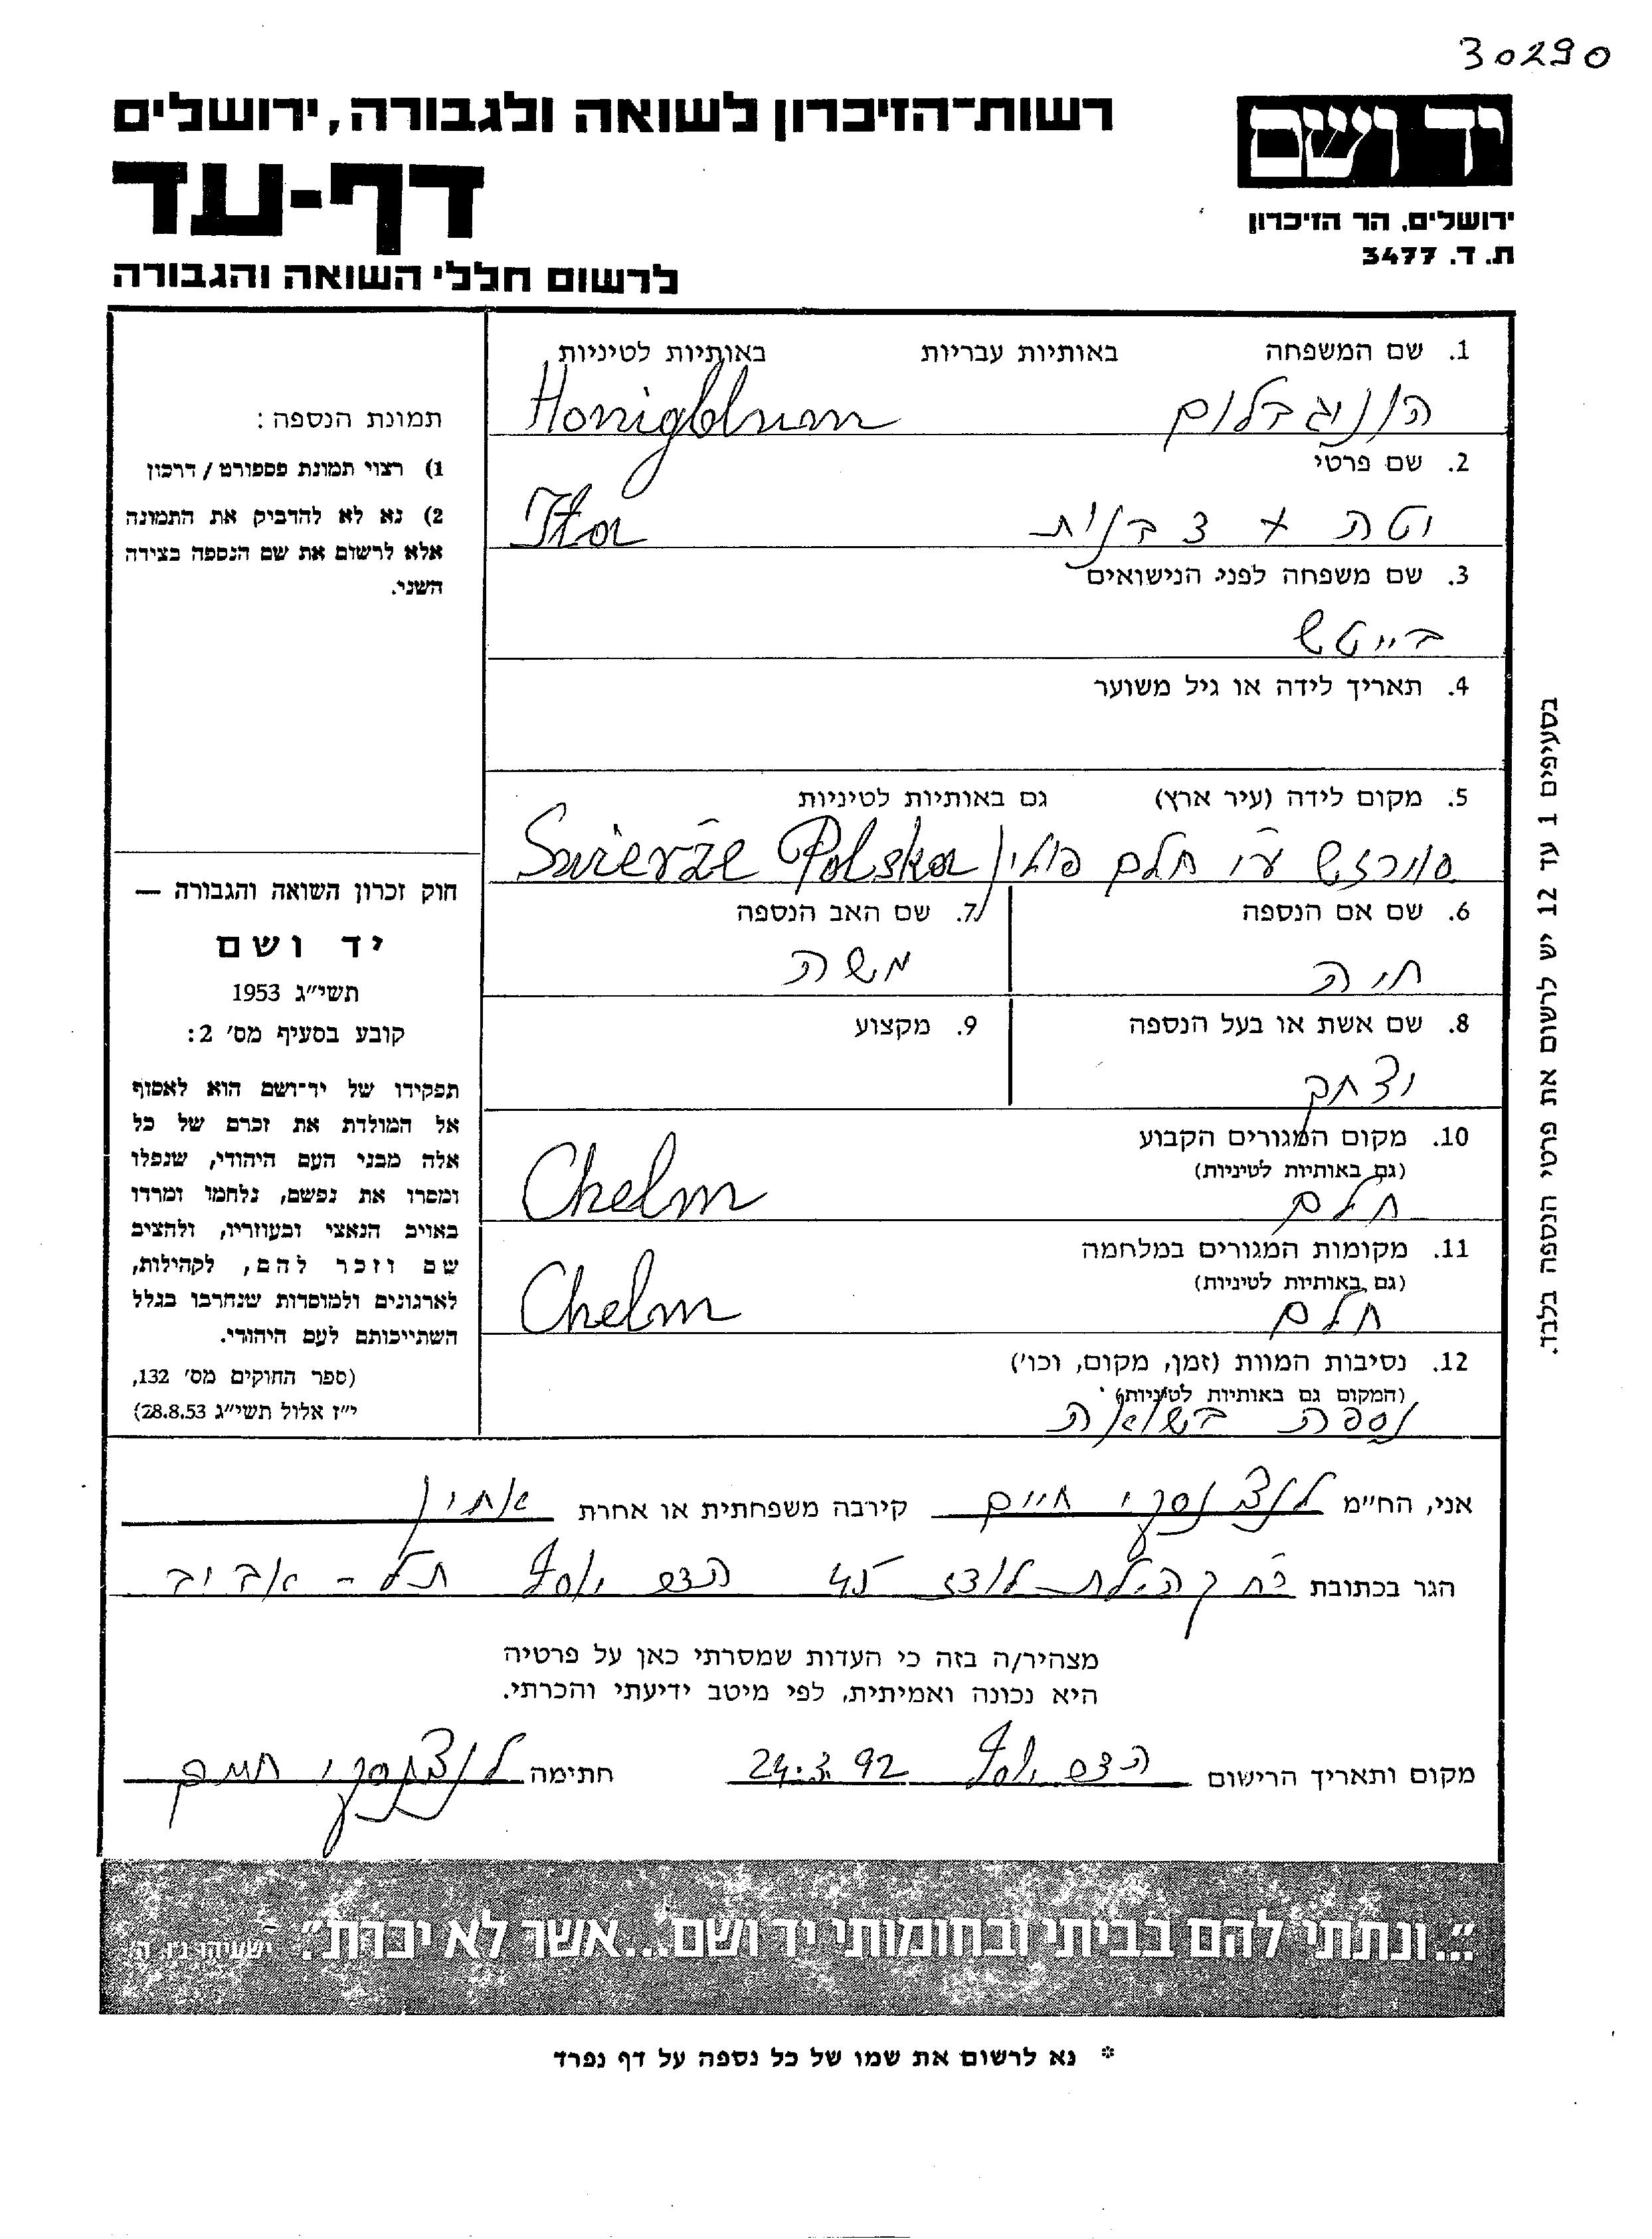 30290
יד ושם
ירושלים, הר הזיכרון
ת. ד. 3477
רשות-הזיכרון לשואה ולגבורה, ירושלים
דף-עד
לרשום חללי השואה והגבורה
1. שם המשפחה באותיות עבריות באותיות לטיניות
הוניגבלום Honigblum
2. שם פרטי
יטה + 3 בנות Ita
3. שם משפחה לפני הנישואים
בייטש
4. תאריך לידה או גיל משוער
5. מקום לידה (עיר ארץ) גם באותיות לטיניות
סוירזש ע"י חלם פולין Świerże Polska
6. שם אם הנספה 7. שם האב הנספה
חיה משה
8. שם אשת או בעל הנספה 9. מקצוע
יצחק
10. מקום המגורים הקבוע
(גם באותיות לטיניות)
חלם Chelm
11. מקומות המגורים במלחמה
(גם באותיות לטיניות)
חלם Chelm
12. נסיבות המוות (זמן, מקום, וכו')
(המקום גם באותיות לטיניות)
נספה בשואה
תמונת הנספה:
1) רצוי תמונת פספורט / דרכון
2) נא לא להדביק את התמונה
אלא לרשום את שם הנספה בצידה
השני.
חוק זכרון השואה והגבורה —
יד ושם
תשי"ג 1953
קובע בסעיף מס' 2:
תפקידו של יד-ושם הוא לאסוף
אל המולדת את זכרם של כל
אלה מבני העם היהודי, שנפלו
ומסרו את נפשם, נלחמו ומרדו
באויב הנאצי ובעוזריו, ולהציב
שם וזכר להם, לקהילות,
לארגונים ולמוסדות שנחרבו בגלל
השתייכותם לעם היהודי.
(ספר החוקים מס' 132,
י"ז אלול תשי"ג 28.8.53)
בסעיפים 1 עד 12 יש לרשום את פרטי הנספה בלבד.
אני, הח"מ לנצ'נסקי חיים קירבה משפחתית או אחרת אחיין
הגר בכתובת רח קהילת לודז 45 הדר יוסף תל-אביב
מצהיר/ה בזה כי העדות שמסרתי כאן על פרטיה
היא נכונה ואמיתית, לפי מיטב ידיעתי והכרתי.
מקום ותאריך הרישום הדר יוסף 24.3.92 חתימה לנצ'נסקי חיים
"...ונתתי להם בביתי ובחומותי יד ושם...אשר לא יכרת". ישעיהו נו, ה
* נא לרשום את שמו של כל נספה על דף נפרד